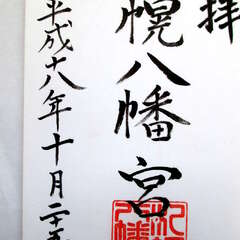 拝
幌八幡宮
平成十八年十月二十五